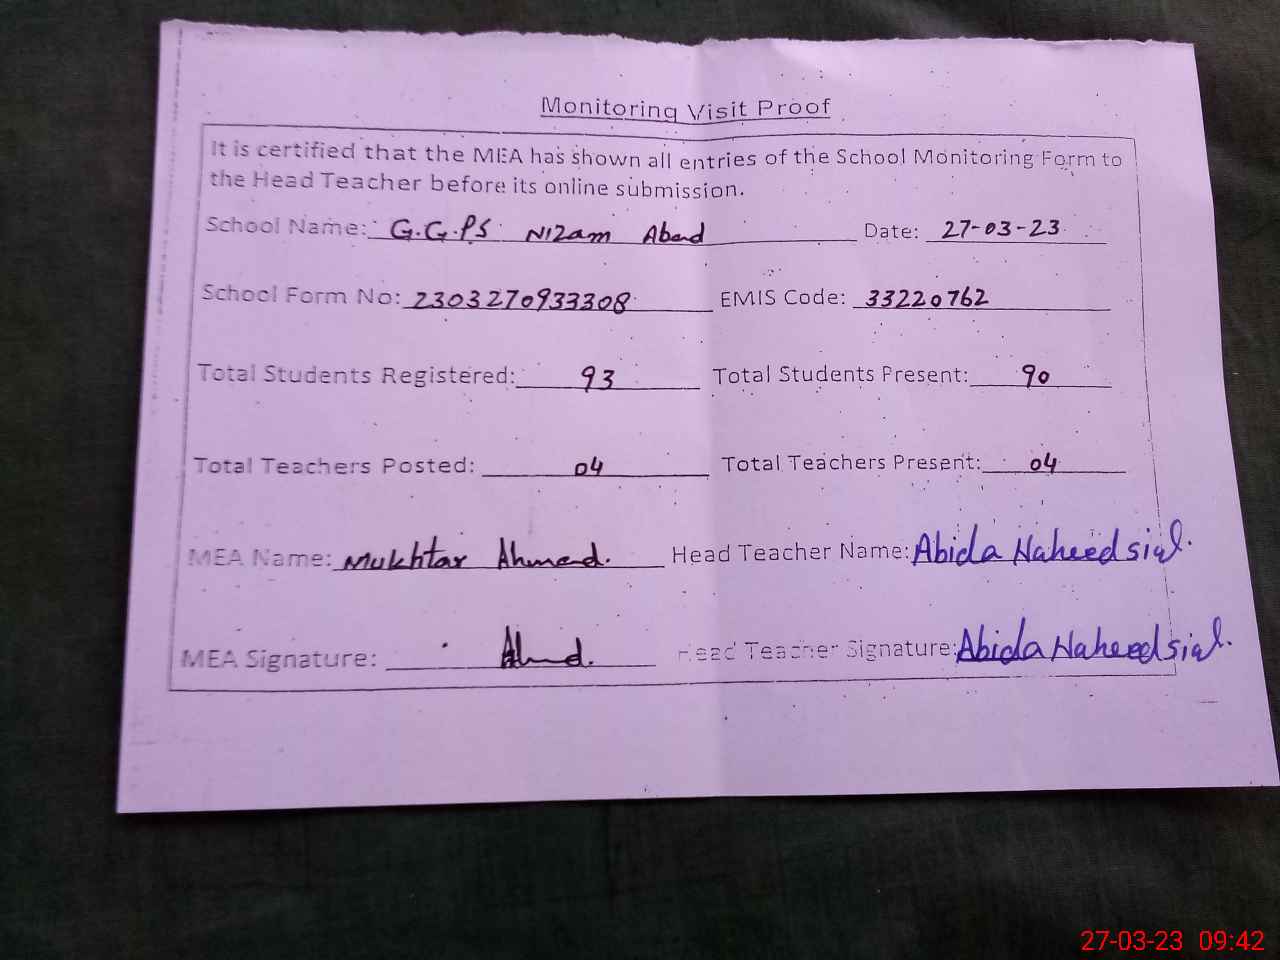 Monitoring Visit Proof
It is certified that the MEA has shown all entries of the School Monitoring Form to
the Head Teacher before its online submission.
School Name: G.G.PS Nizam Abad Date: 27-03-23
School Form No: 2303270933308 EMIS Code: 33220762
Total Students Registered: 93 Total Students Present: 90
Total Teachers Posted: 04 Total Teachers Present: 04
MEA Name: Mukhtar Ahmad. Head Teacher Name: Abida Naheed sial.
MEA Signature: Ahmd. Head Teacher Signature: Abida Naheed sial.
27-03-23 09:42